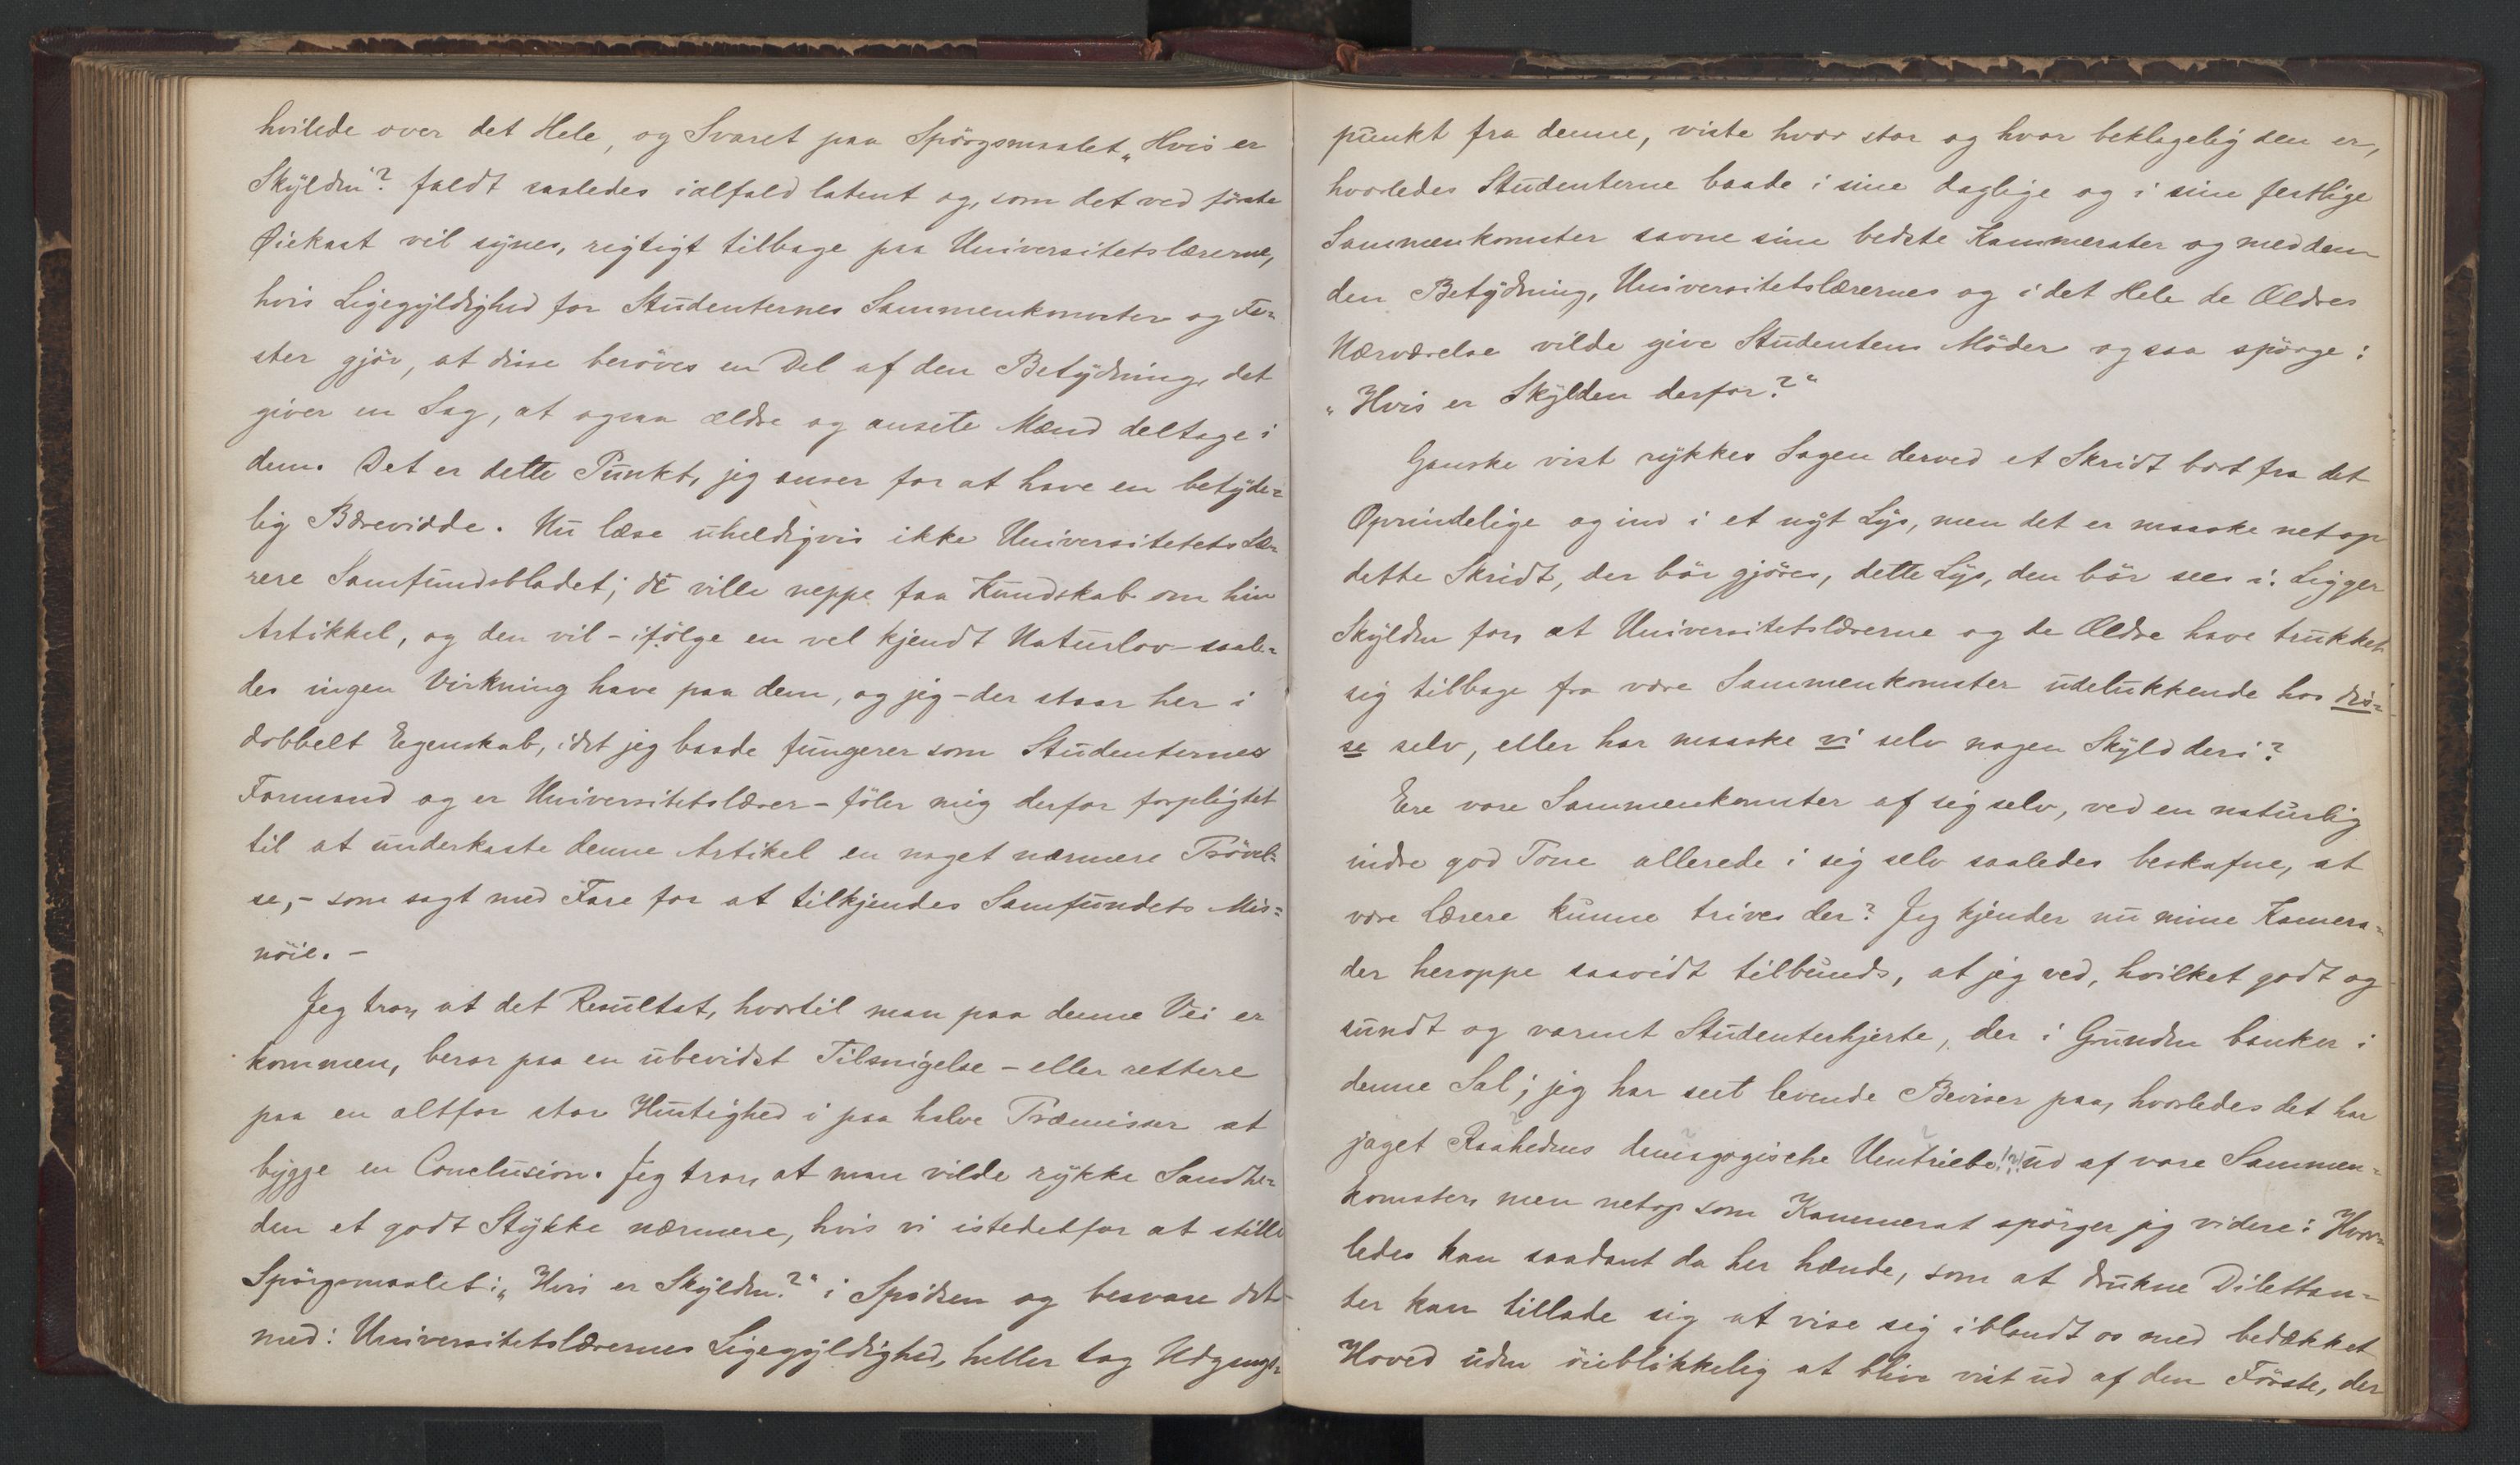 hvilede over det Hele, og Svaret paa Spörgsmaalet „Hvis er
Skylden"? faldt saaledes ialfald latent og, som det ved förste
Öiekast vil synes, rigtigt tilbage paa Universitetslærerne,
hvis Ligegyldighed for Studenternes Sammenkomster og Fe-
ster gjör, at disse beröves en Del af den Betydning, det
giver en Sag, at ogsaa ældre og ansete Mænd deltage i
dem. Det er dette Punkt, jeg anser for at have en betyde-
lig Bærevidde. Nu læse uheldigvis ikke Universitetets Læ-
rere Samfundsbladet; de ville neppe faa Kundskab om hin
Artikkel, og den vil - ifölge en vel kjendt Naturlov - saale-
des ingen Virkning have paa dem, og jeg - der staar her i
dobbelt Egenskab, idet jeg baade fungerer som Studenternes
Formand og er Universitetslærer - föler mig derfor forpligtet
til at underkaste denne Artikel en noget nærmere Prövel-
se, - som sagt med Fare for at tilkjendes Samfundets Mis-
nöie. -
Jeg tror, at det Resultat, hvortil man paa denne Vei er
kommen, beror paa en ubevidst Tilsnigelse - eller rettere
paa en altfor stor Hurtighed i paa halve Præmisser at
bygge en Conclusion. Jeg tror, at man vilde rykke Sandhe-
den et godt Stykke nærmere, hvis vi istedetfor at stille
Spörgsmaalet: „Hvis er Skylden?" i Spidsen og besvare det
med: Universitetslærernes Ligegyldighed, heller tog Udgangs-
punkt fra denne, viste hvor stor og hvor beklagelig den er,
hvorledes Studenterne baade i sine daglige og i sine festlige
Sammenkomster savne sine bedste Kammerater og med dem
den Betydning, Universitetslærernes og i det Hele de Ældres
Nærværelse vilde give Studentens Möder og saa spörge:
„Hvis er Skylden derfor?"
Ganske vist rykkes Sagen derved et Skridt bort fra det
Oprindelige og ind i et nyt Lys, men det er maaske netop
dette Skridt, der bör gjöres, dette Lys, den bör sees i. Ligger
Skylden for, at Universitetslærerne og de Ældre have trukket
sig tilbage fra vore Sammenkomster udelukkende hos dis-
se selv, eller har maaske vi selv nogen Skyld deri?
Ere vore Sammenkomster af sig selv, ved en naturlig
indre god Tone allerede i sig selv saaledes beskafne, at
vore Lærere kunne trives der? Jeg kjender nu mine Kamera-
der heroppe saavidt tilbunds, at jeg ved, hvilket godt og
sundt og varmt Studenterhjerte, der i Grunden banker i
denne Sal; jeg har seet levende Beviser paa, hvorledes det har
jaget Raahedens demagogische Umtriebe!?! ud af vore Sammen-
komster, men netop som Kammerat spörger jeg videre: Hvor-
ledes kan saadant da her hænde, som at drukne Dilettan-
ter kan tillade sig at vise sig iblandt os med bedækket
Hoved uden öieblikkelig at blive vist ud af den Förste, der